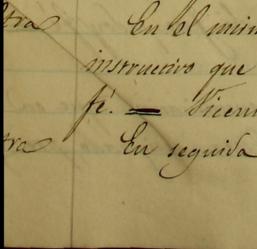 otra En el mism
instructivo que
fé. = Vicen
otra En seguida